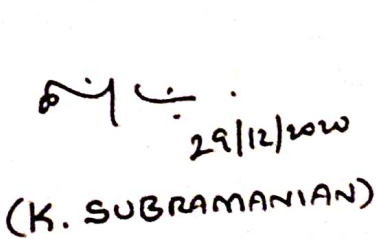 29/12/2020
(K. SUBRAMANIAN)